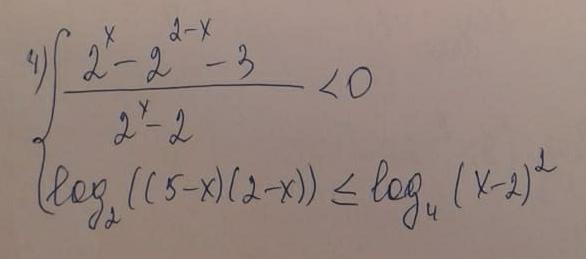 4) { (2^x - 2^(2-x) - 3) / (2^x - 2) < 0
log₂((5-x)(2-x)) ≤ log₄(x-2)²